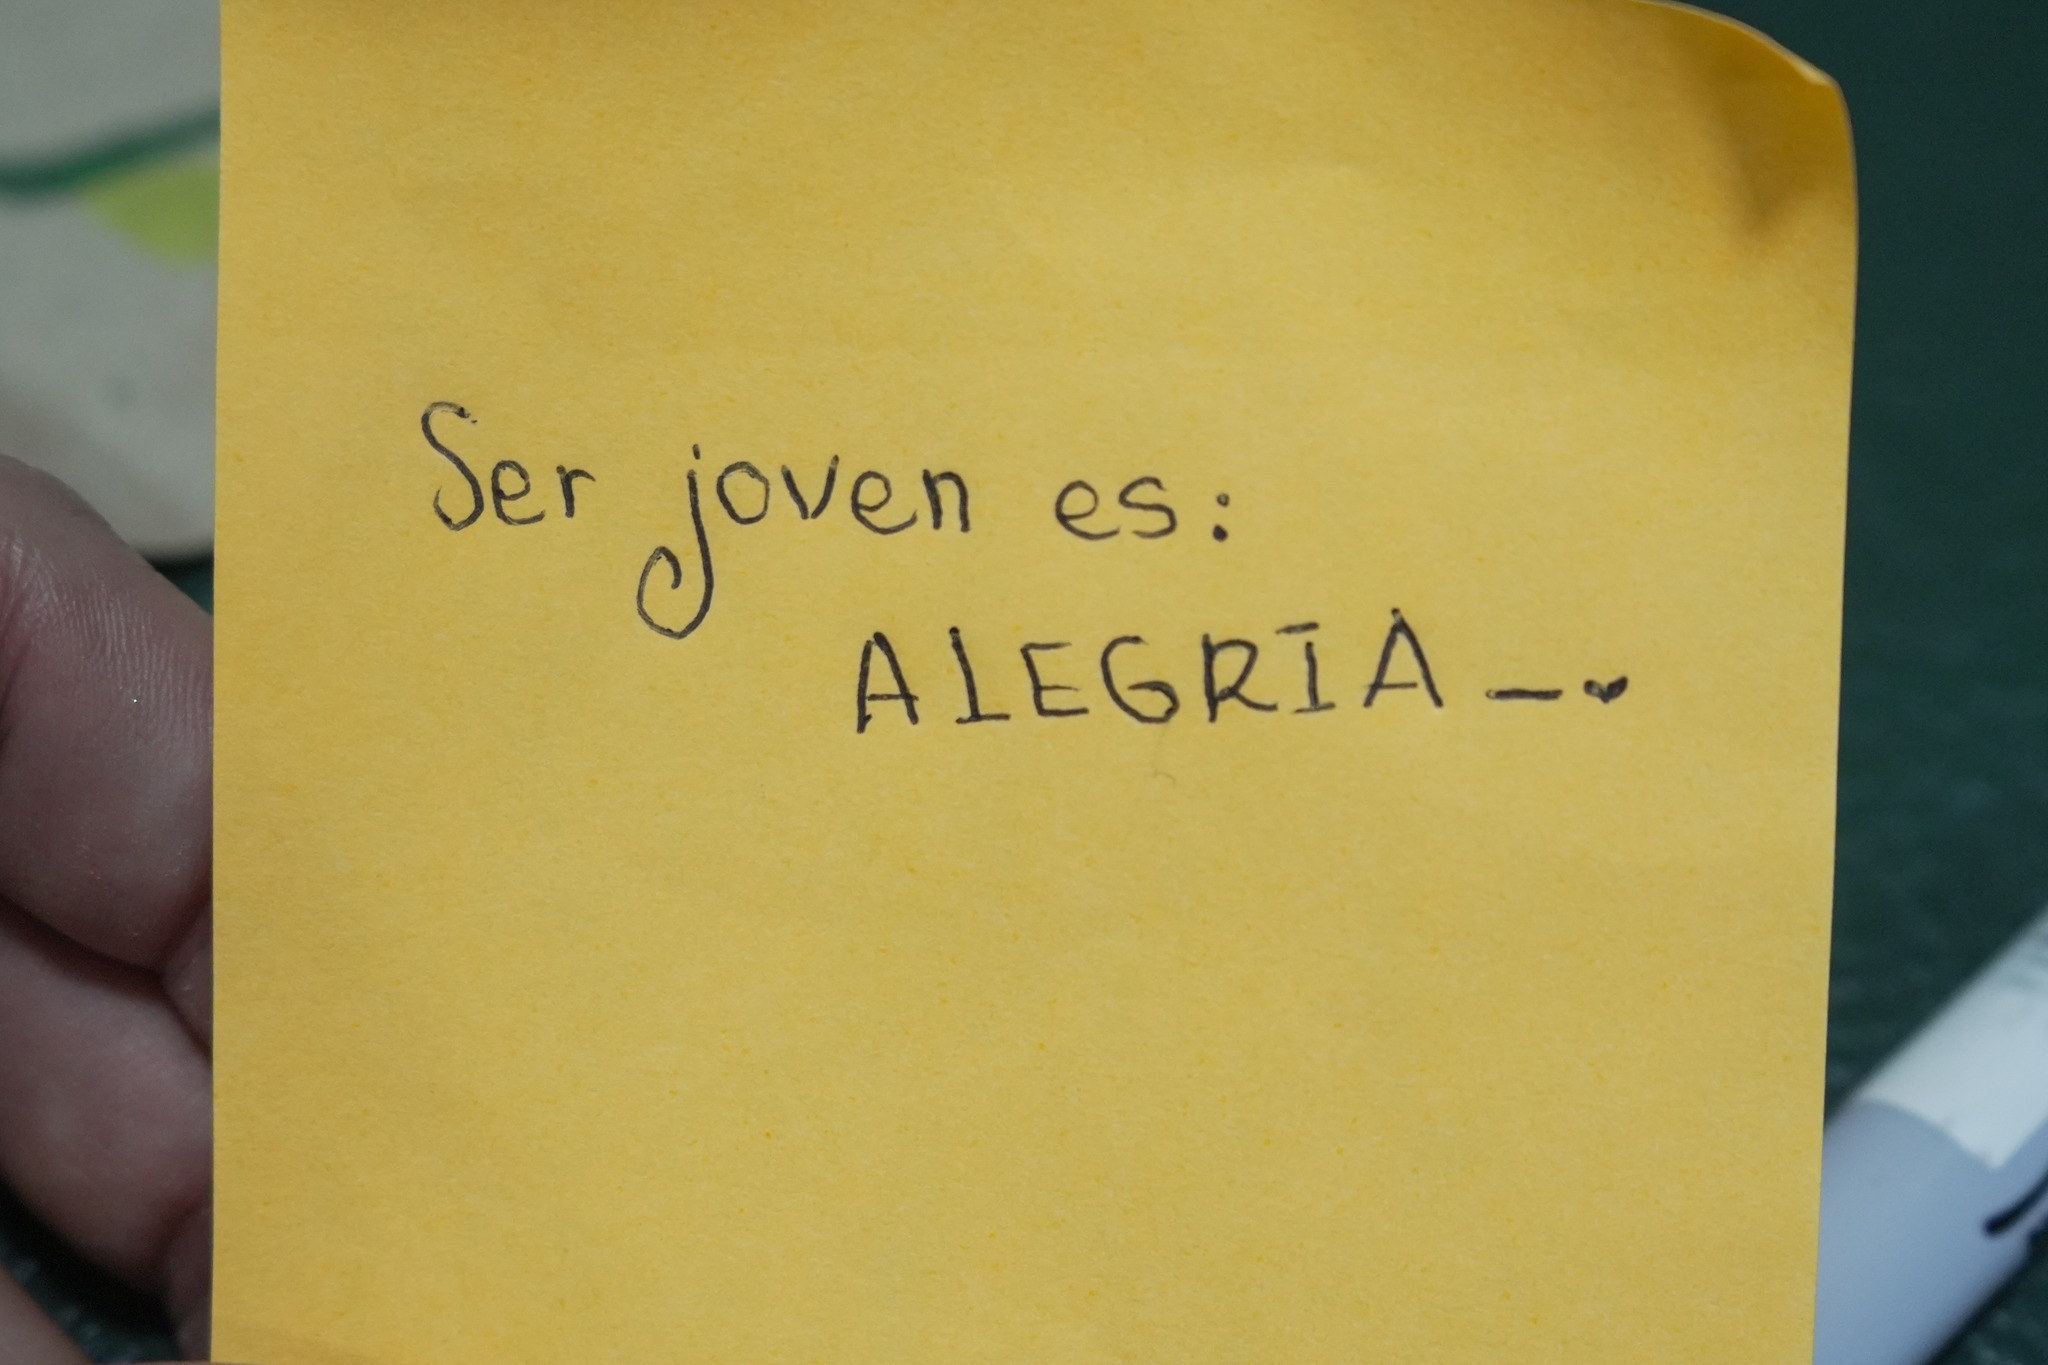 Ser joven es:
ALEGRIA _.